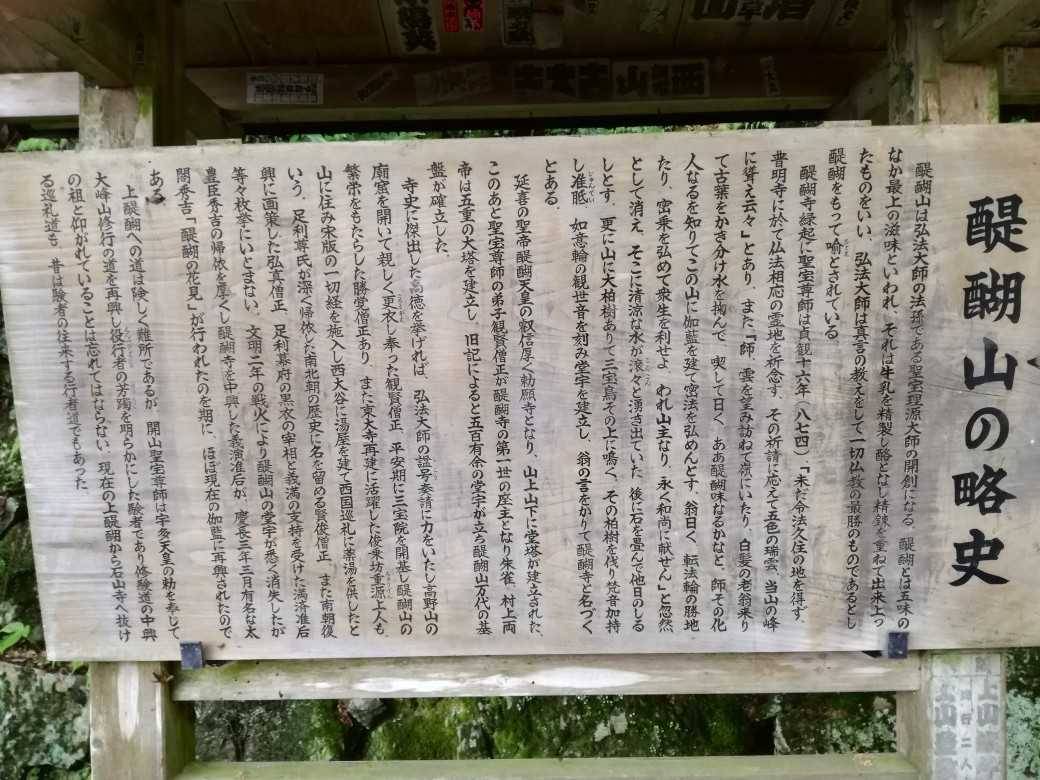 醍醐山の略史
醍醐山は弘法大師の法孫である聖宝理源大師の開創になる。醍醐とは五味の
なか最上の滋味といわれ、それは牛乳を精製し酪となし精錬を重ねて出来上っ
たものをいい、弘法大師は真言の教えをして一切仏教の最勝のものであるとし
醍醐をもって喩とされている。
醍醐寺縁起に聖宝尊師は貞観十六年(八七四)、「未だ令法久住の地を得ず、
普明寺に於て仏法相応の霊地を祈念す、その祈請に応えて五色の瑞雲、当山の峰
に聳え云々」とあり、また「師、雲を望み訪ねて嶺にいたり、白髪の老翁来り
て古葉をかき分け水を掬んで、喫して曰く、ああ醍醐味なるかなと、師その化
人なるを知りてこの山に伽藍を建て密法を弘めんとす、翁曰く、転法輪の勝地
たり、密乗を弘めて衆生を利せよ、われ山主なり、永く和尚に献せん」と忽然
として消え、そこに清涼な水が滾々と湧き出ていた、後に石を畳んで他日のしる
しとす、更に山に大柏樹ありて三宝鳥その上に鳴く、その柏樹を伐り梵音加持
し准胝、如意輪の観世音を刻み堂宇を建立し、翁の言をかりて醍醐寺と名づく
とある。
延喜の聖帝醍醐天皇の叡信厚く勅願寺となり、山上山下に堂塔が建立された、
このあと聖宝尊師の弟子観賢僧正が醍醐寺の第一世の座主となり朱雀、村上両
帝は五重の大塔を建立し、旧記によると五百有余の堂宇が立ち醍醐山万代の基
盤が確立した。
寺史に傑出した高徳を挙げれば、弘法大師の諡号奏請に力をいたし高野山の
廟窟を開いて親しく更衣し奉った観賢僧正、平安期に三宝院を開基し醍醐山の
繁栄をもたらした勝覚僧正あり、また東大寺再建に活躍した俊乗坊重源上人も、
山に住み宋版の一切経を施入し西大谷に湯屋を建て西国巡礼に薬湯を供したと
いう、足利尊氏が深く帰依した南北朝の歴史に名を留める賢俊僧正、また南朝復
興に画策した弘真僧正、足利幕府の黒衣の宰相と義満の支持を受けた満済准后
等々枚挙にいとまない、文明二年の戦火により醍醐山の堂宇が悉く消失したが
豊臣秀吉の帰依を厚くし醍醐寺を中興した義演准后が、慶長三年三月有名な太
閤秀吉「醍醐の花見」が行われたのを期に、ほぼ現在の伽藍に再興されたので
ある
上醍醐への道は険しく難所であるが、開山聖宝尊師は宇多天皇の勅を奉じて
大峰山修行の道を再興し役行者の芳躅を明らかにした験者であり修験道の中興
の祖と仰がれていることは忘れてはならない、現在の上醍醐から石山寺へ抜け
る巡礼道も、昔は験者の往来する行者道でもあった。